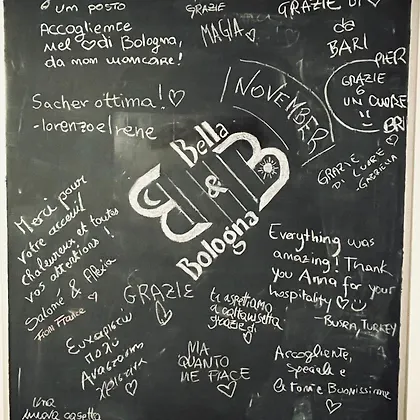 UM POSTO
Accogliente
nel ♡ di Bologna,
da non mancare!
GRAZIE
MAGIA
GRAZIE DI ♡
da
BARI
PIER
GRAZIE
6
UN CUORE
BRI
Sacher ottima! ♡
- lorenzo e Irene
NOVEMBER
GRAZIE
DI CUORE
GABRIELLA
Bella
B & B
Bologna
Merci pour
votre acceuil
chaleureux et toutes
vos attentions!
Salomé & Alexia
From France
Everything was
amazing! Thank
you Anna for your
hospitality ♡
- BUSRA, TURKEY
GRAZIE
ti aspettiamo
a caltanissetta
grazie
Ευχαριστώ
πολύ
Αναστάσης
Χριστίνα
MA
QUANTO
ME PIACE
Accogliente,
Speciale e
la Torta Buonissima
Una
nuova casetta